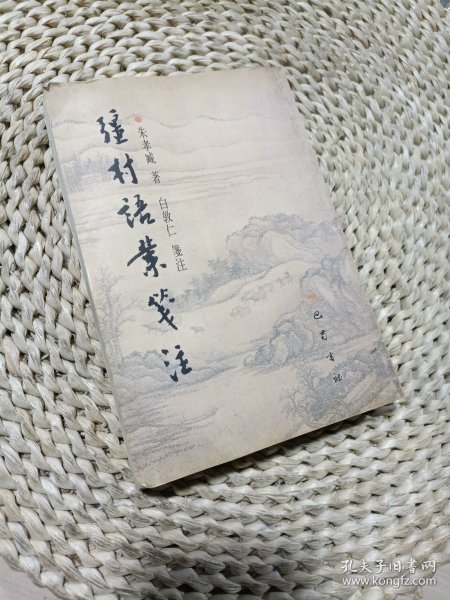 彊村語業箋注
朱孝臧 著 白敦仁 箋注
巴蜀書社
孔夫子旧书网
www.kongfz.com